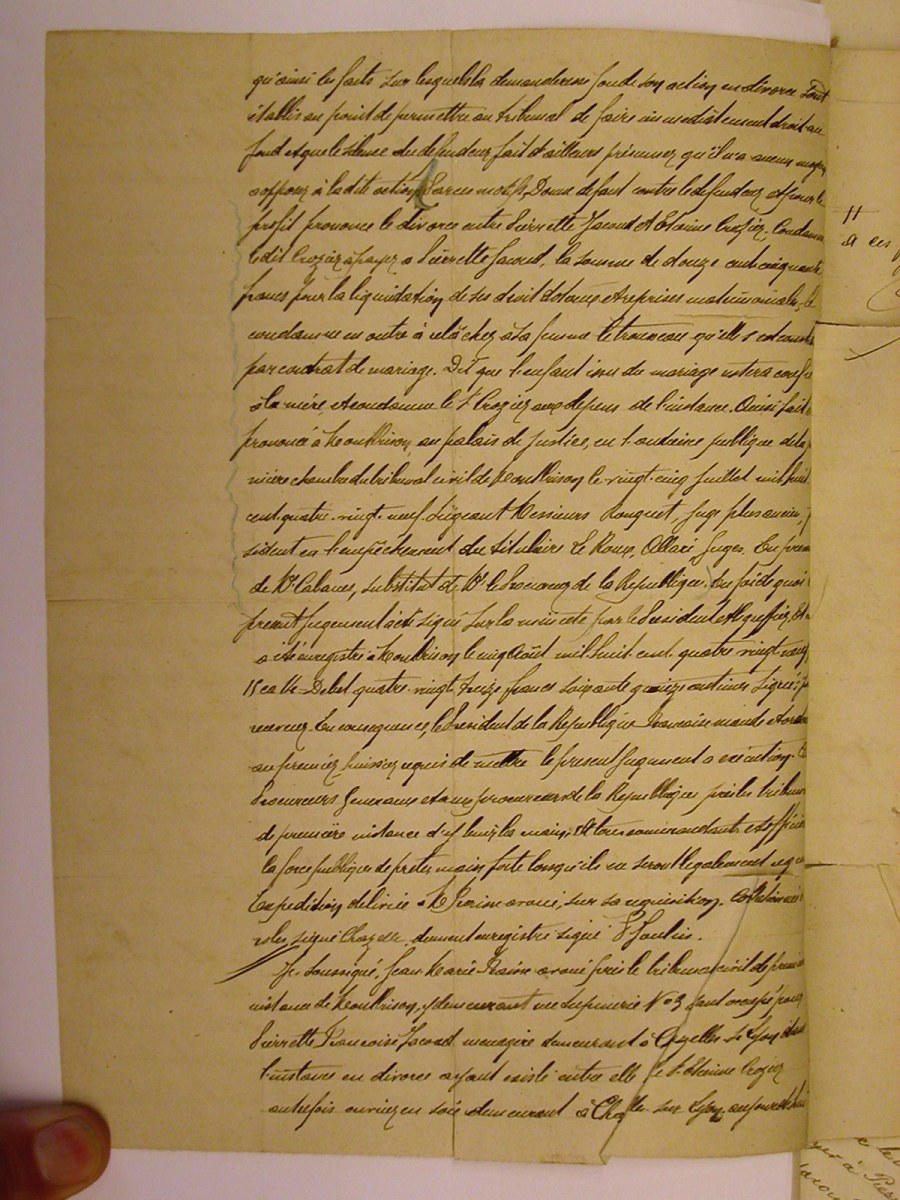 qu'ainsi les faits sur lesquels la demanderesse fonde son action en divorce sont
établis au point de permettre au tribunal de faire immédiatement droit au
fond et que le silence du défendeur fait d'ailleurs présumer qu'il n'a aucun moyen
a opposer à la dite action, Par ces motifs, Donne défaut contre le défendeur et pour le
profit prononce le divorce entre Pierrette Jacout et Etienne Crozier. Condamne
le dit Crozier à payer a Pierrette Jacout, la somme de douze cent cinquante
francs pour la liquidation de ses droit dotaux et reprises matrimoniales, le
condamne en outre à relâcher à sa femme le trousseau qu'elle s'est
par contrat de mariage. Dit que l'enfant issu du mariage restera confié
à la mère et condamne le Sr Crozier aux dépens de l'instance. Ainsi fait
prononcé à Montbrison, au palais de justice, en l'audience publique de la
mière chambre du tribunal civil de Montbrison le vingt-cinq Juillet mil huit
cent quatre-vingt-neuf. Siégeant Messieurs Rouquet, juge plus ancien, p
sident en l'empêchement du titulaire Le Roux, Allari Juges. En présen
de Mr Cabanes, substitut de Mr le Procureur de la République. En foi de quoi
présent Jugement a été signé sur la minute par le Président et le greffier. Et
a été enregistré à Montbrison le cinq Août mil huit cent quatre vingt neuf
Debet quatre-vingt treize francs soixante quinze centimes Signé:
receveur. En conséquence, le Président de la République Française mande et ordon
au premier huissier requis de mettre le présent Jugement a exécution.
Procureurs Généraux et aux procureurs de la République près les tribun
de première instance d'y tenir la main, Et tous commandants et officiers
la force publique de prêter main forte lorsqu'ils en seront légalement requi
Expédition délivrée à Me Raison avoué, sur sa réquisition.
rôles, signé Chazelle, dument enregistré signé P. Joulin.
Je soussigné, Jean Marie Raison avoué près le tribunal civil de première
instance de Montbrison, y demeurant rue No 3 ayant occupé pour
Pierrette Françoise Jacout ménagère demeurant à Chazelles-s-Lyon dans
l'instance en divorce ayant existé entre elle & le Sr Etienne Crozier
autrefois ouvrier en soie demeurant à Chazelles-sur-Lyon, aujourd'hui
a ces